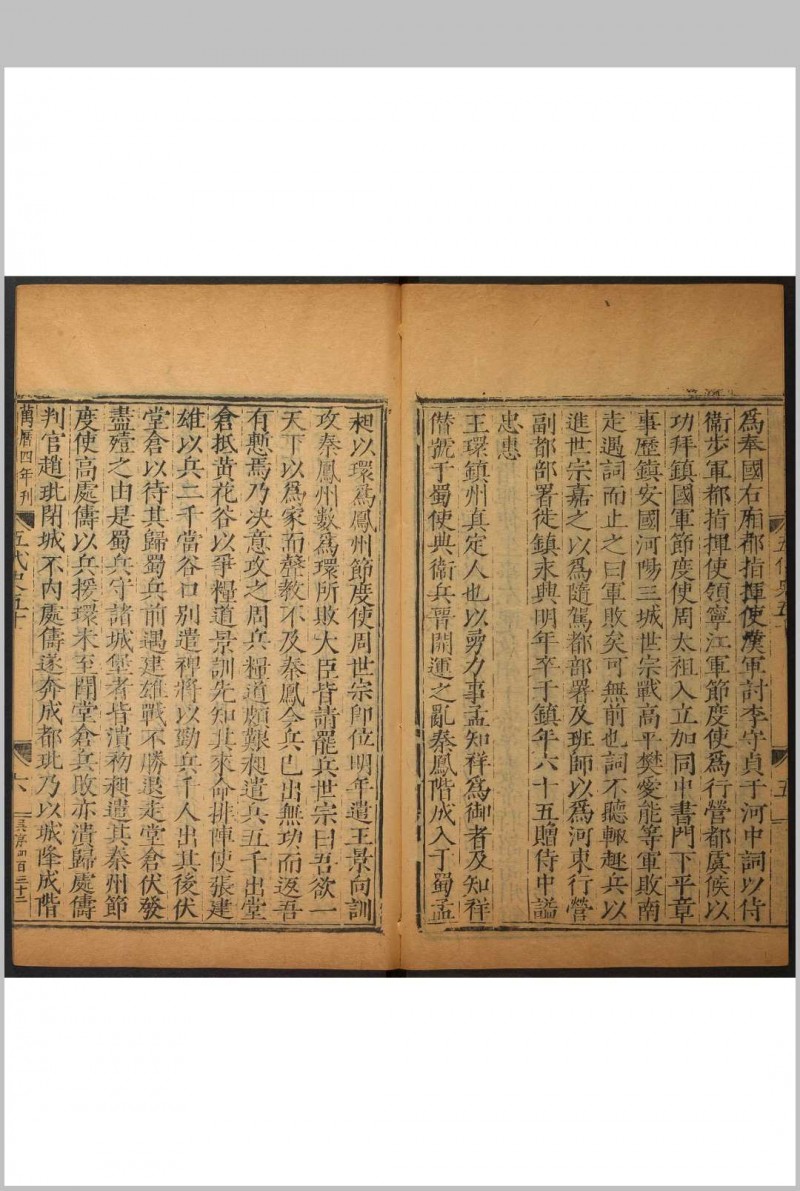 五代史五十
五
爲奉國右廂都指揮使漢軍討李守貞于河中詞以侍
衛步軍都指揮使領寧江軍節度使爲行營都虞候以
功拜鎮國軍節度使周太祖入立加同中書門下平章
事歷鎮安國河陽三城世宗戰高平樊愛能等軍敗南
走遇詞而止之曰軍敗矣可無前也詞不聽輙趣兵以
進世宗嘉之以爲隨駕都部署及班師以爲河東行營
副都部署徙鎮永興明年卒于鎮年六十五贈侍中謚
忠惠
王環鎮州真定人也以勇力事孟知祥爲御者及知祥
僭號于蜀使典衛兵晉開運之亂秦鳳階成入于蜀孟
昶以環爲鳳州節度使周世宗即位明年遣王景向訓
攻秦鳳州數爲環所敗大臣皆請罷兵世宗曰吾欲一
天下以爲家而聲教不及秦鳳今兵已出無功而返吾
有慙焉乃决意攻之周兵糧道頗艱昶遣兵五千出堂
倉抵黃花谷以爭糧道景訓先知其來命排陣使張建
雄以兵二千當谷口别遣裨將以勁兵千人出其後伏
堂倉以待其歸蜀兵前遇建雄戰不勝退走堂倉伏發
盡殪之由是蜀兵守諸城堡者皆潰初昶遣其秦州節
度使高處儔以兵援環未至聞堂倉兵敗亦潰歸處儔
判官趙玭閉城不内處儔遂奔成都玭乃以城降成階
萬曆四年刊
五代史五十
六